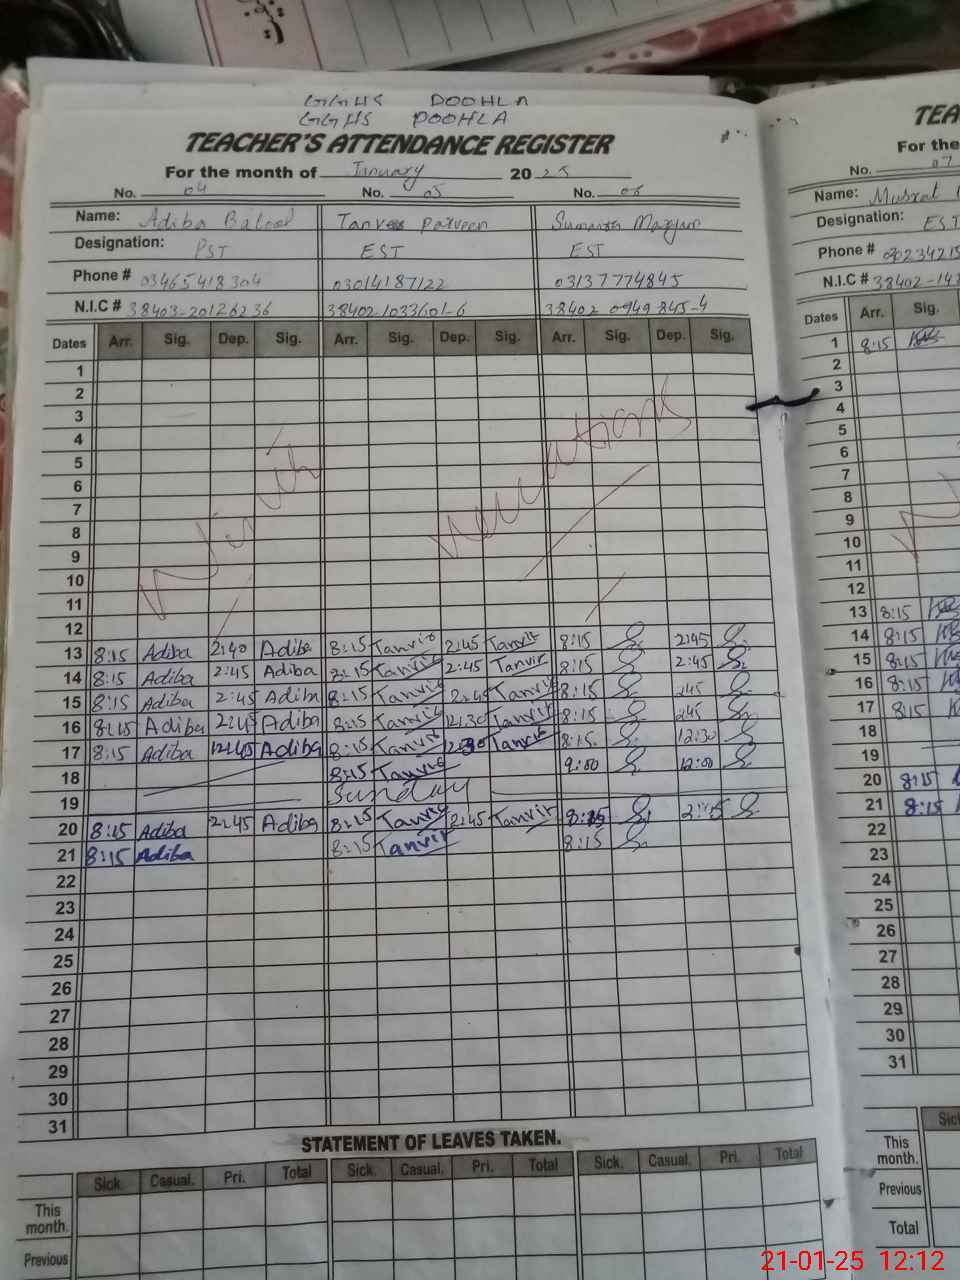 GGHS DOOHLA
GGHS DOOHLA
TEACHER'S ATTENDANCE REGISTER
For the month of January 2025
No. 04 No. 05 No. 06
Name: Adiba Batool Tanveer Parveen
Designation: PST EST EST
Phone # 03465418304 03014187122 03137774845
N.I.C # 38403-20126236 38402 1033601-6 38402 0949 845-4
Dates Arr. Sig. Dep. Sig. Arr. Sig. Dep. Sig. Arr. Sig. Dep. Sig.
1
2
3
4
5
6
7
8
9
10
11
12
Winter vacations
13 8:15 Adiba 2:40 Adiba 8:15 Tanvir 2:45 Tanvir 8:15 2:45
14 8:15 Adiba 2:45 Adiba 8:15 Tanvir 2:45 Tanvir 8:15 2:45
15 8:15 Adiba 2:45 Adiba 8:15 Tanvir 2:45 Tanvir 8:15 245
16 8:15 Adiba 2:45 Adiba 8:15 Tanvir 12:30 Tanvir 8:15 245
17 8:15 Adiba 12:45 Adiba 8:15 Tanvir 12:30 Tanvir 8:15 12:30
18 8:15 Tanvir 9:00 12:00
19 Sunday
20 8:15 Adiba 2:45 Adiba 8:15 Tanvir 2:45 Tanvir 8:15 2:45
21 8:15 Adiba 8:15 Tanvir 8:15
22
23
24
25
26
27
28
29
30
31
STATEMENT OF LEAVES TAKEN.
Sick. Casual. Pri. Total Sick. Casual. Pri. Total Sick. Casual. Pri. Total
This month.
Previous
TEA
For the
No. 07
Name:
Designation: EST
Phone #
N.I.C #
Dates Arr. Sig.
1 8:15
2
3
4
5
6
7
8
9
10
11
12
13 8:15
14 8:15
15 8:15
16 8:15
17 8:15
18
19
20 8:15
21 8:15
22
23
24
25
26
27
28
29
30
31
This month.
Previous
Total
21-01-25 12:12